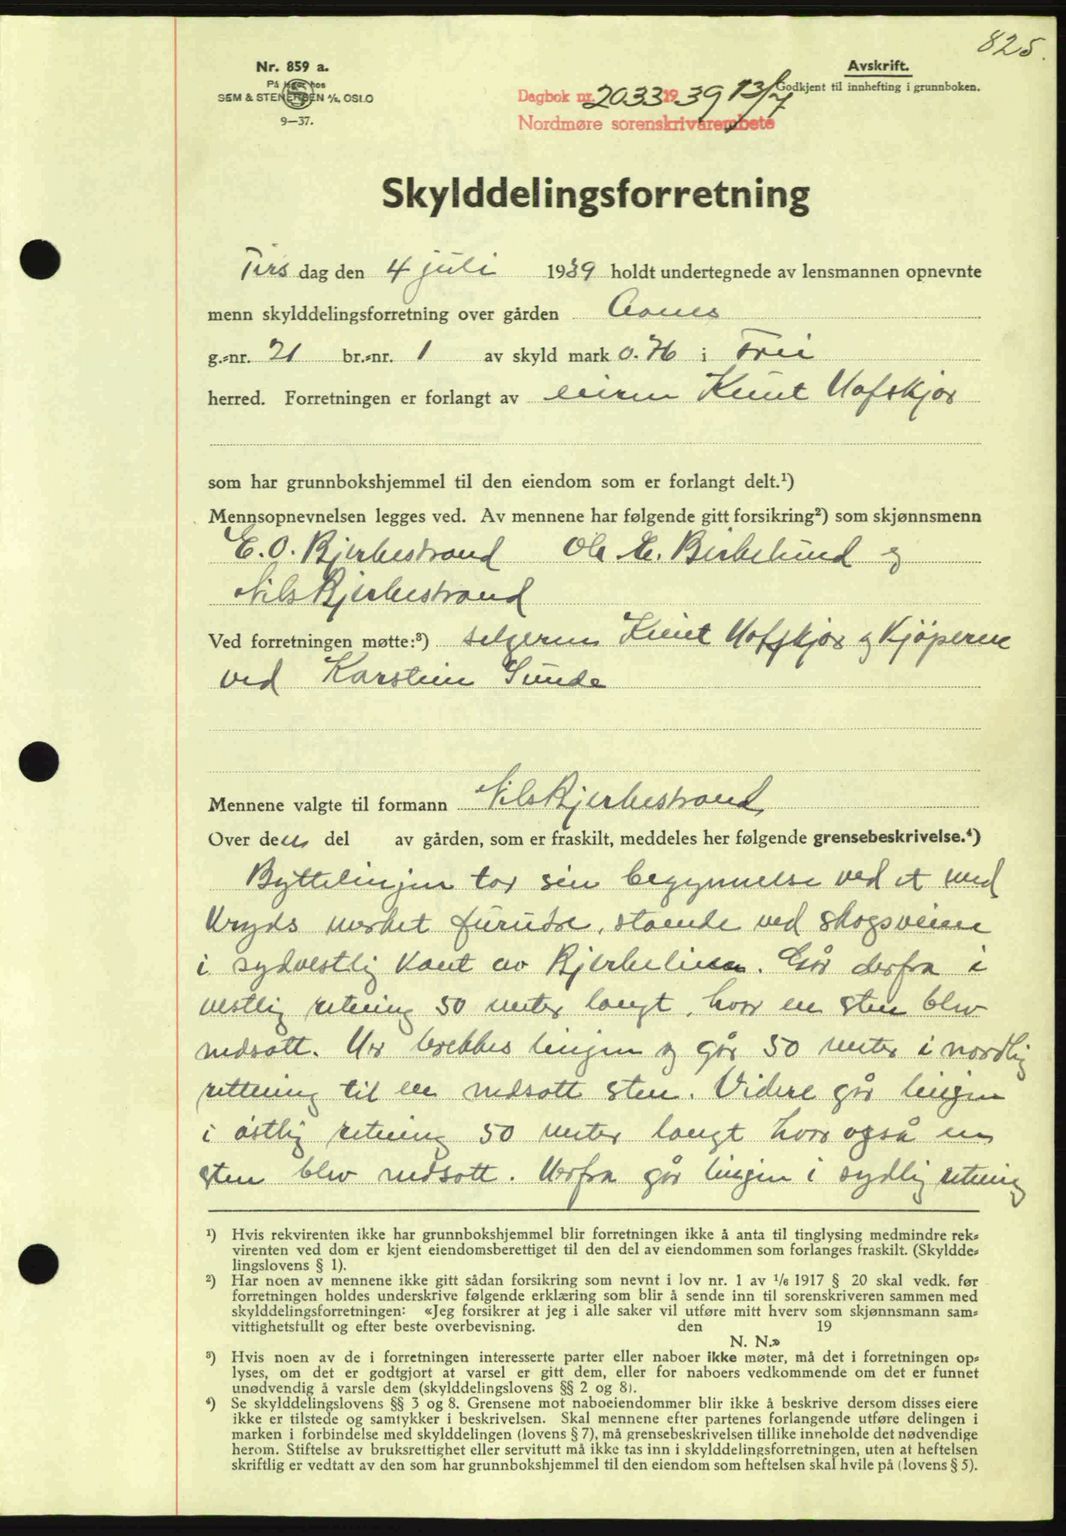 825.
Nr. 859 a.
På lager hos
SEM & STENERSEN A/S, OSLO
9—37.
Avskrift.
Godkjent til innhefting i grunnboken.
Dagbok nr. 2033 1939 13/7
Nordmøre sorenskriverembete
Skylddelingsforretning
Tirs dag den 4 juli 1939 holdt undertegnede av lensmannen opnevnte
menn skylddelingsforretning over gården Aanes
g.-nr. 21 br.-nr. 1 av skyld mark 0.76 i Frei
herred. Forretningen er forlangt av eieren Knut Hafskjær
som har grunnbokshjemmel til den eiendom som er forlangt delt.¹)
Mennsopnevnelsen legges ved. Av mennene har følgende gitt forsikring²) som skjønnsmenn
E. O. Bjerkestrand Ole E. Birkelund og
Nils Bjerkestrand
Ved forretningen møtte:³) selgeren Knut Hafskjær og Kjøperne
ved Karsten Sunde
Mennene valgte til formann Nils Bjerkestrand
Over den del av gården, som er fraskilt, meddeles her følgende grensebeskrivelse.⁴)
Byttelinjen tar sin begynnelse ved et med
kryds merket furutre, stående ved skogsveien
i sydvestlig kant av Bjerkelien. Går derfra i
vestlig retning 50 meter langt, hvor en sten blev
nedsatt. Her brekkes linjen og går 50 meter i nordlig
rettning til en nedsatt sten. Videre går linjen
i østlig retning 50 meter langt hvor også en
sten blev nedsatt. Herfra går linjen i sydlig retning
¹) Hvis rekvirenten ikke har grunnbokshjemmel blir forretningen ikke å anta til tinglysing medmindre rek-
virenten ved dom er kjent eiendomsberettiget til den del av eiendommen som forlanges fraskilt. (Skyldde-
lingslovens § 1).
²) Har noen av mennene ikke gitt sådan forsikring som nevnt i lov nr. 1 av 1/6 1917 § 20 skal vedk. før
forretningen holdes underskrive følgende erklæring som blir å sende inn til sorenskriveren sammen med
skylddelingsforretningen: «Jeg forsikrer at jeg i alle saker vil utføre mitt hverv som skjønnsmann sam-
vittighetsfullt og efter beste overbevisning. den 19
N. N.»
³) Hvis noen av de i forretningen interesserte parter eller naboer ikke møter, må det i forretningen op-
lyses, om det er godtgjort at varsel er gitt dem, eller for naboers vedkommende om det er funnet
unødvendig å varsle dem (skylddelingslovens §§ 2 og 8).
⁴) Se skylddelingslovens §§ 3 og 8. Grensene mot naboeiendommer blir ikke å beskrive dersom disses eiere
ikke er tilstede og samtykker i beskrivelsen. Skal mennene efter partenes forlangende utføre delingen i
marken i forbindelse med skylddelingen (lovens § 7), må grensebeskrivelsen tillike inneholde det nødvendige
herom. Stiftelse av bruksrettighet eller servitutt må ikke tas inn i skylddelingsforretningen, uten at heftelsen
skriftlig er vedtatt av den som har grunnbokshjemmel til den eiendom som heftelsen skal hvile på (lovens § 5).